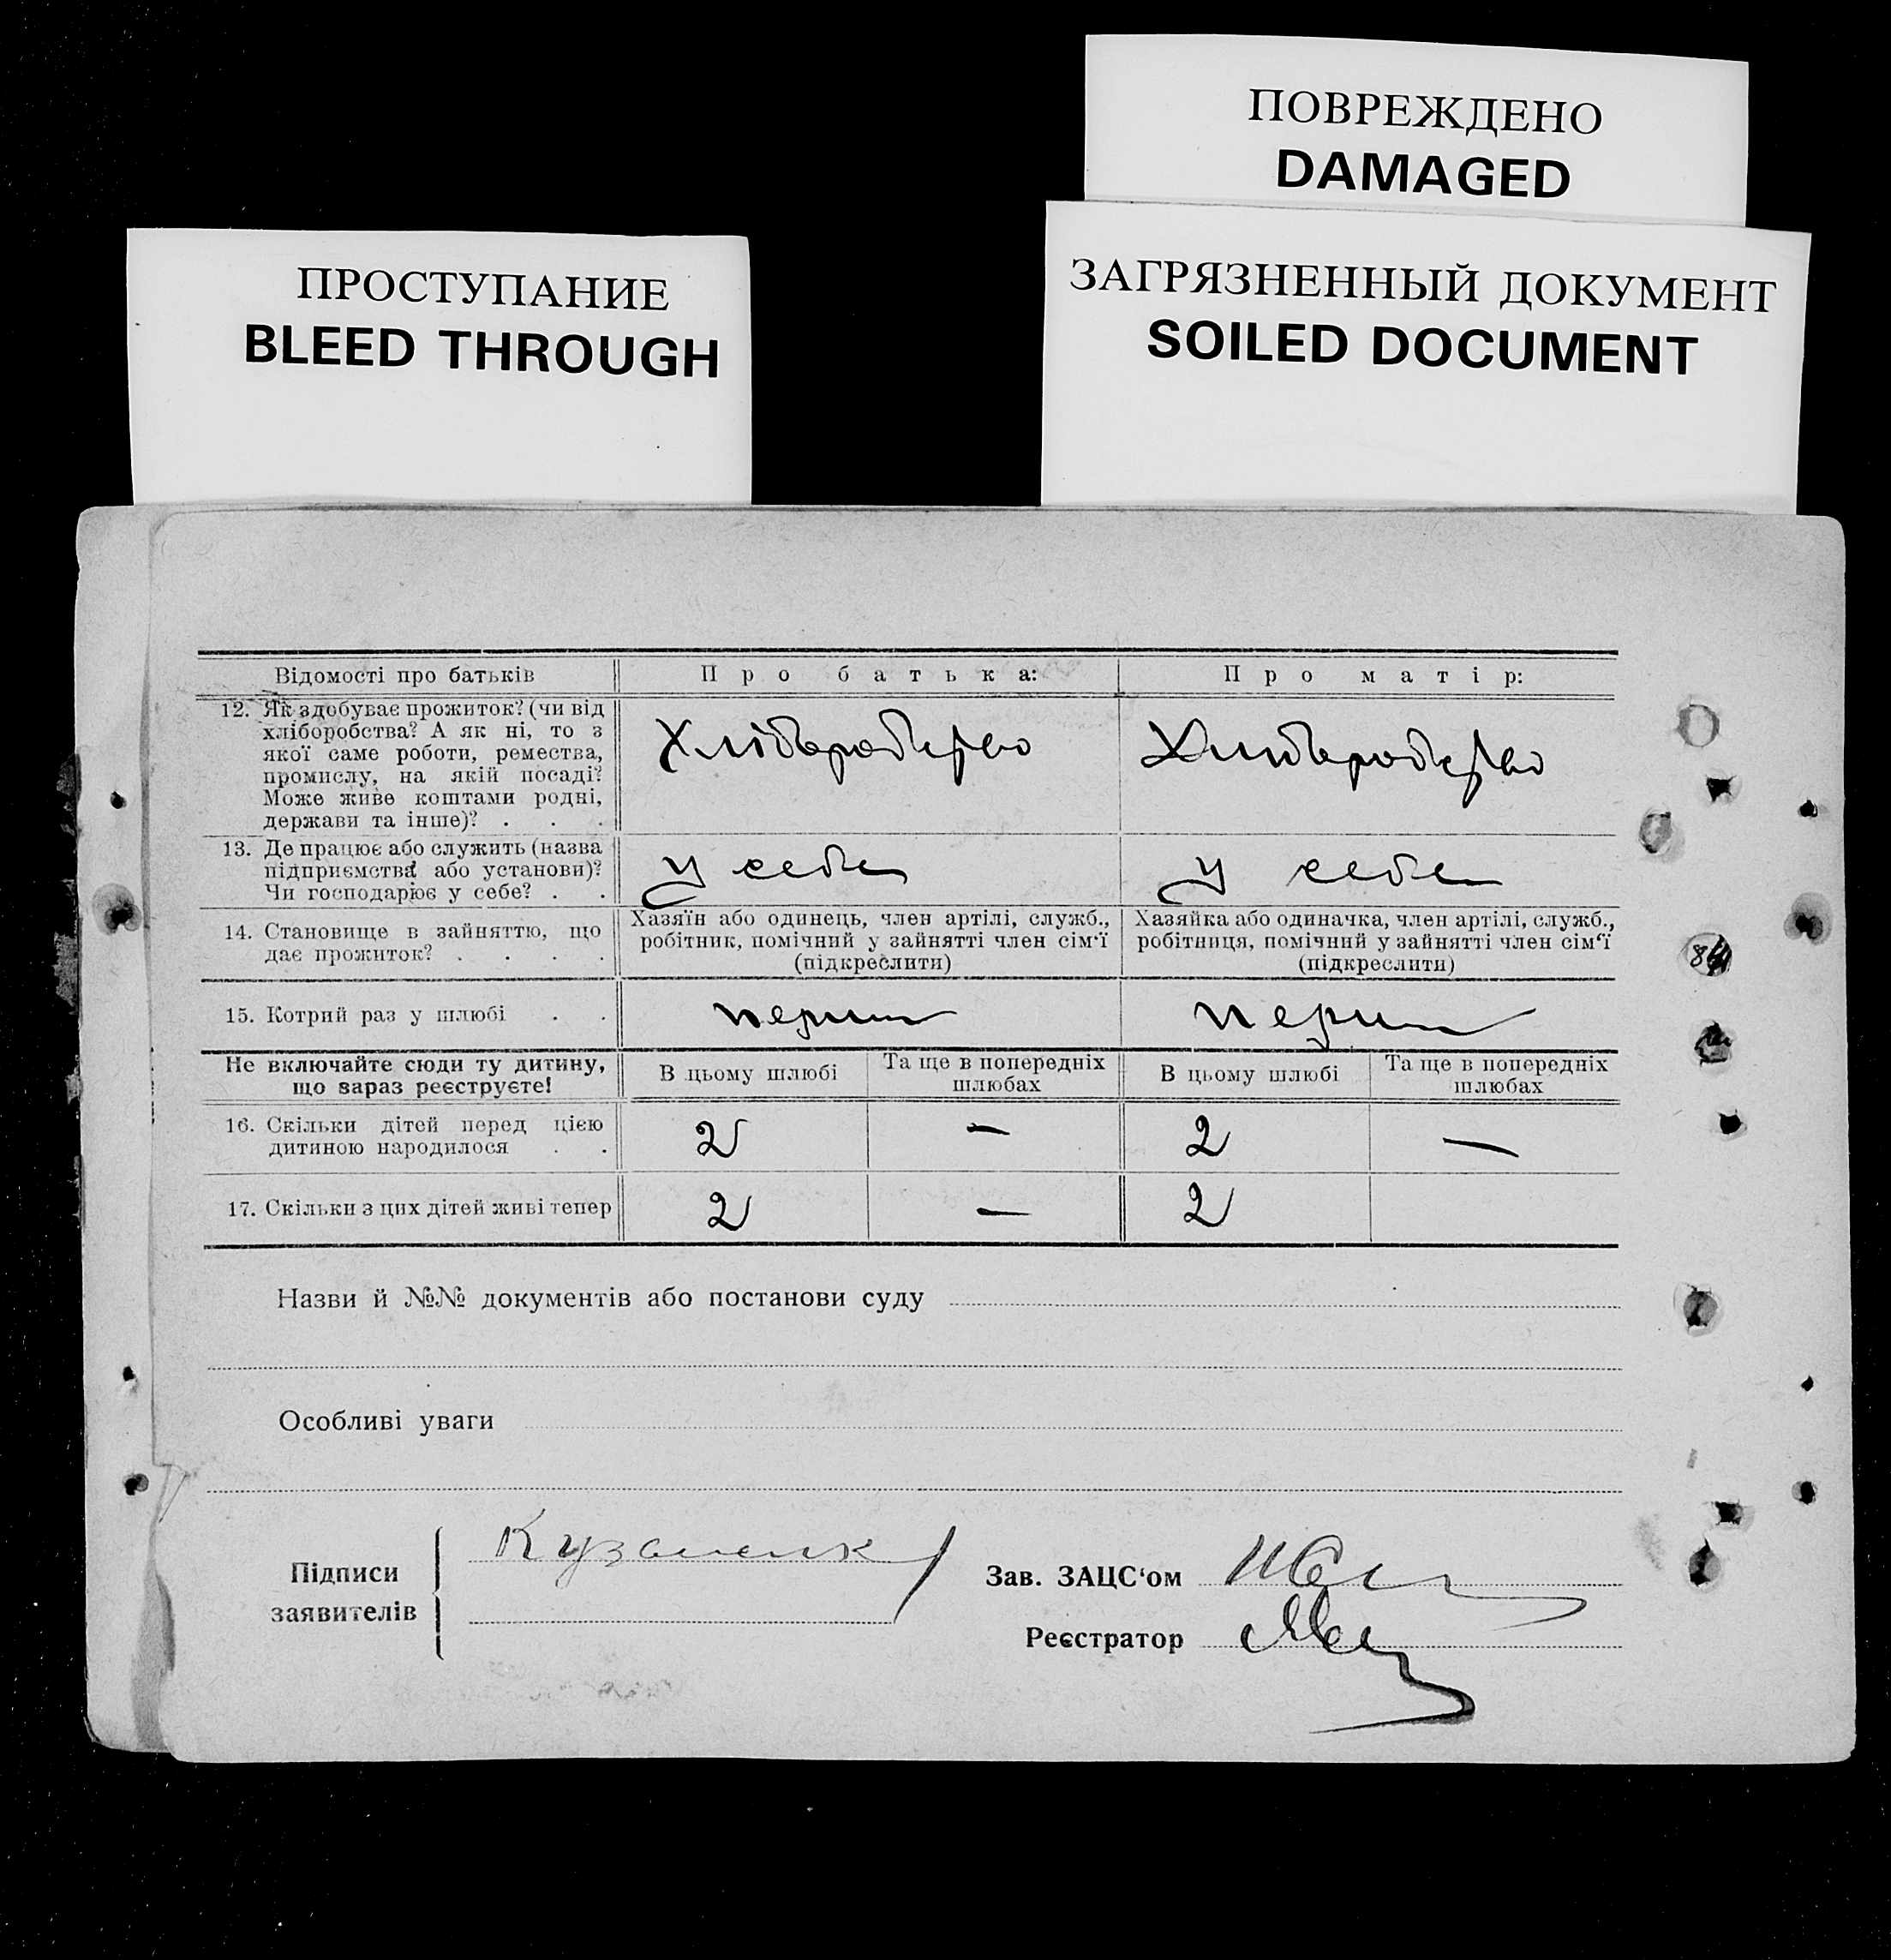 ПОВРЕЖДЕНО
DAMAGED
ПРОСТУПАНИЕ
BLEED THROUGH
ЗАГРЯЗНЕННЫЙ ДОКУМЕНТ
SOILED DOCUMENT
Відомості про батьків
Про батька:
Про матір:
12. Як здобуває прожиток? (чи від
хліборобства? А як ні, то з
якої саме роботи, ремества,
промислу, на якій посаді?
Може живе коштами родні,
держави та інше)? . . .
Хліборобство
Хліборобство
13. Де працює або служить (назва
підприємства або установи)?
Чи господарює у себе? . .
у себе
у себе
14. Становище в зайняттю, що
дає прожиток? . . . .
Хазяїн або одинець, член артілі, служб.,
робітник, помічний у зайнятті член сім'ї
(підкреслити)
Хазяйка або одиначка, член артілі, служб.,
робітниця, помічний у зайнятті член сім'ї
(підкреслити)
15. Котрий раз у шлюбі . .
перший
перший
Не включайте сюди ту дитину,
що зараз реєструєте!
В цьому шлюбі
Та ще в попередніх
шлюбах
В цьому шлюбі
Та ще в попередніх
шлюбах
16. Скільки дітей перед цією
дитиною народилося . .
2
—
2
—
17. Скільки з цих дітей живі тепер
2
—
2
Назви й №№ документів або постанови суду
Особливі уваги
Підписи
заявителів
Зав. ЗАЦС‘ом
Реєстратор